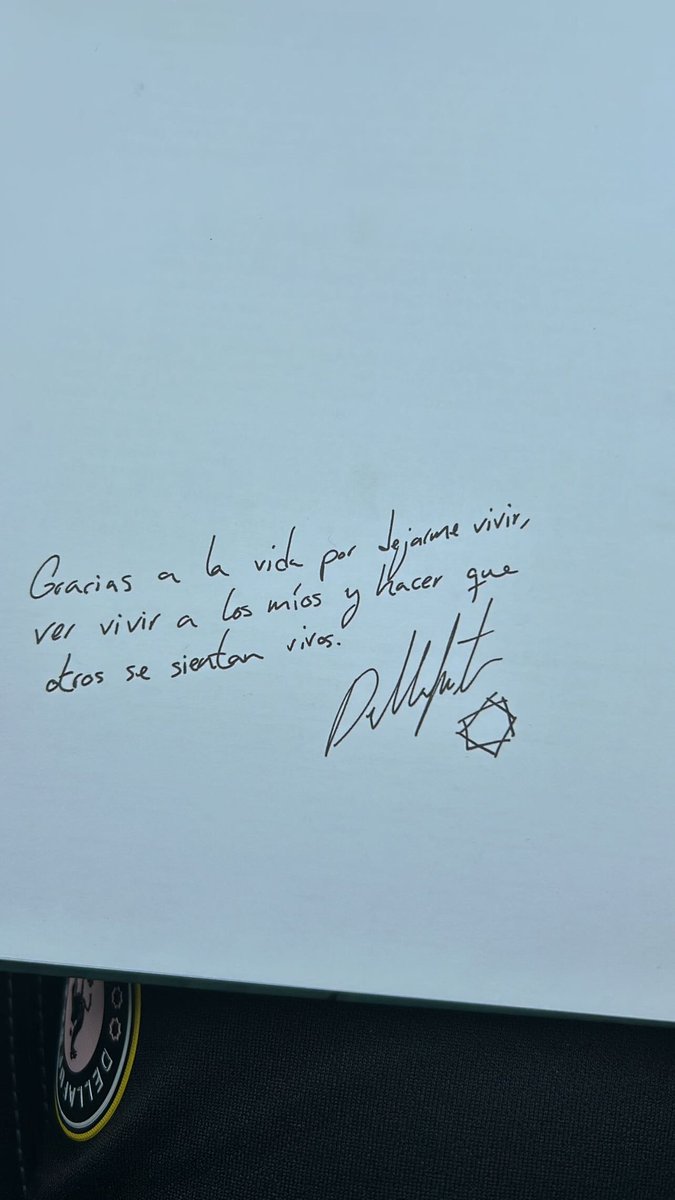 Gracias a la vida por dejarme vivir,
ver vivir a los míos y hacer que
otros se sientan vivos.
Dellafuente
DELLAFU